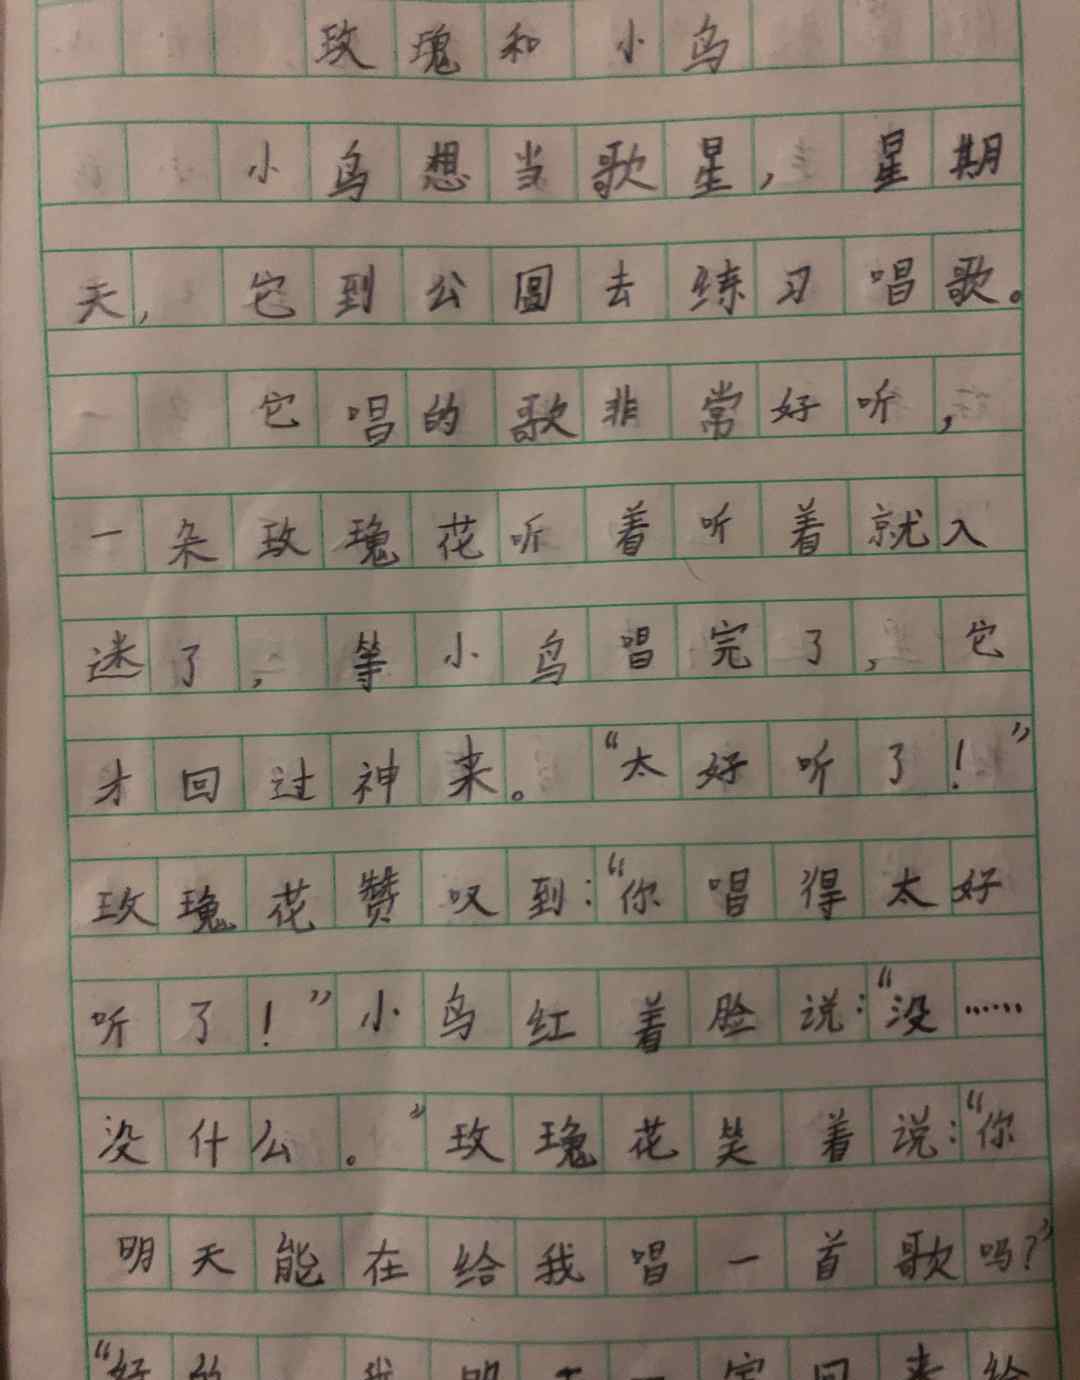 玫瑰和小鸟
小鸟想当歌星，星期
天，它到公圆去练习唱歌。
它唱的歌非常好听，
一朵玫瑰花听着听着就入
迷了，等小鸟唱完了，它
才回过神来。“太好听了！”
玫瑰花赞叹到：“你唱得太好
听了！”小鸟红着脸说：“没……
没什么。”玫瑰花笑着说：“你
明天能在给我唱一首歌吗？”
“好的 我明天一定回来给